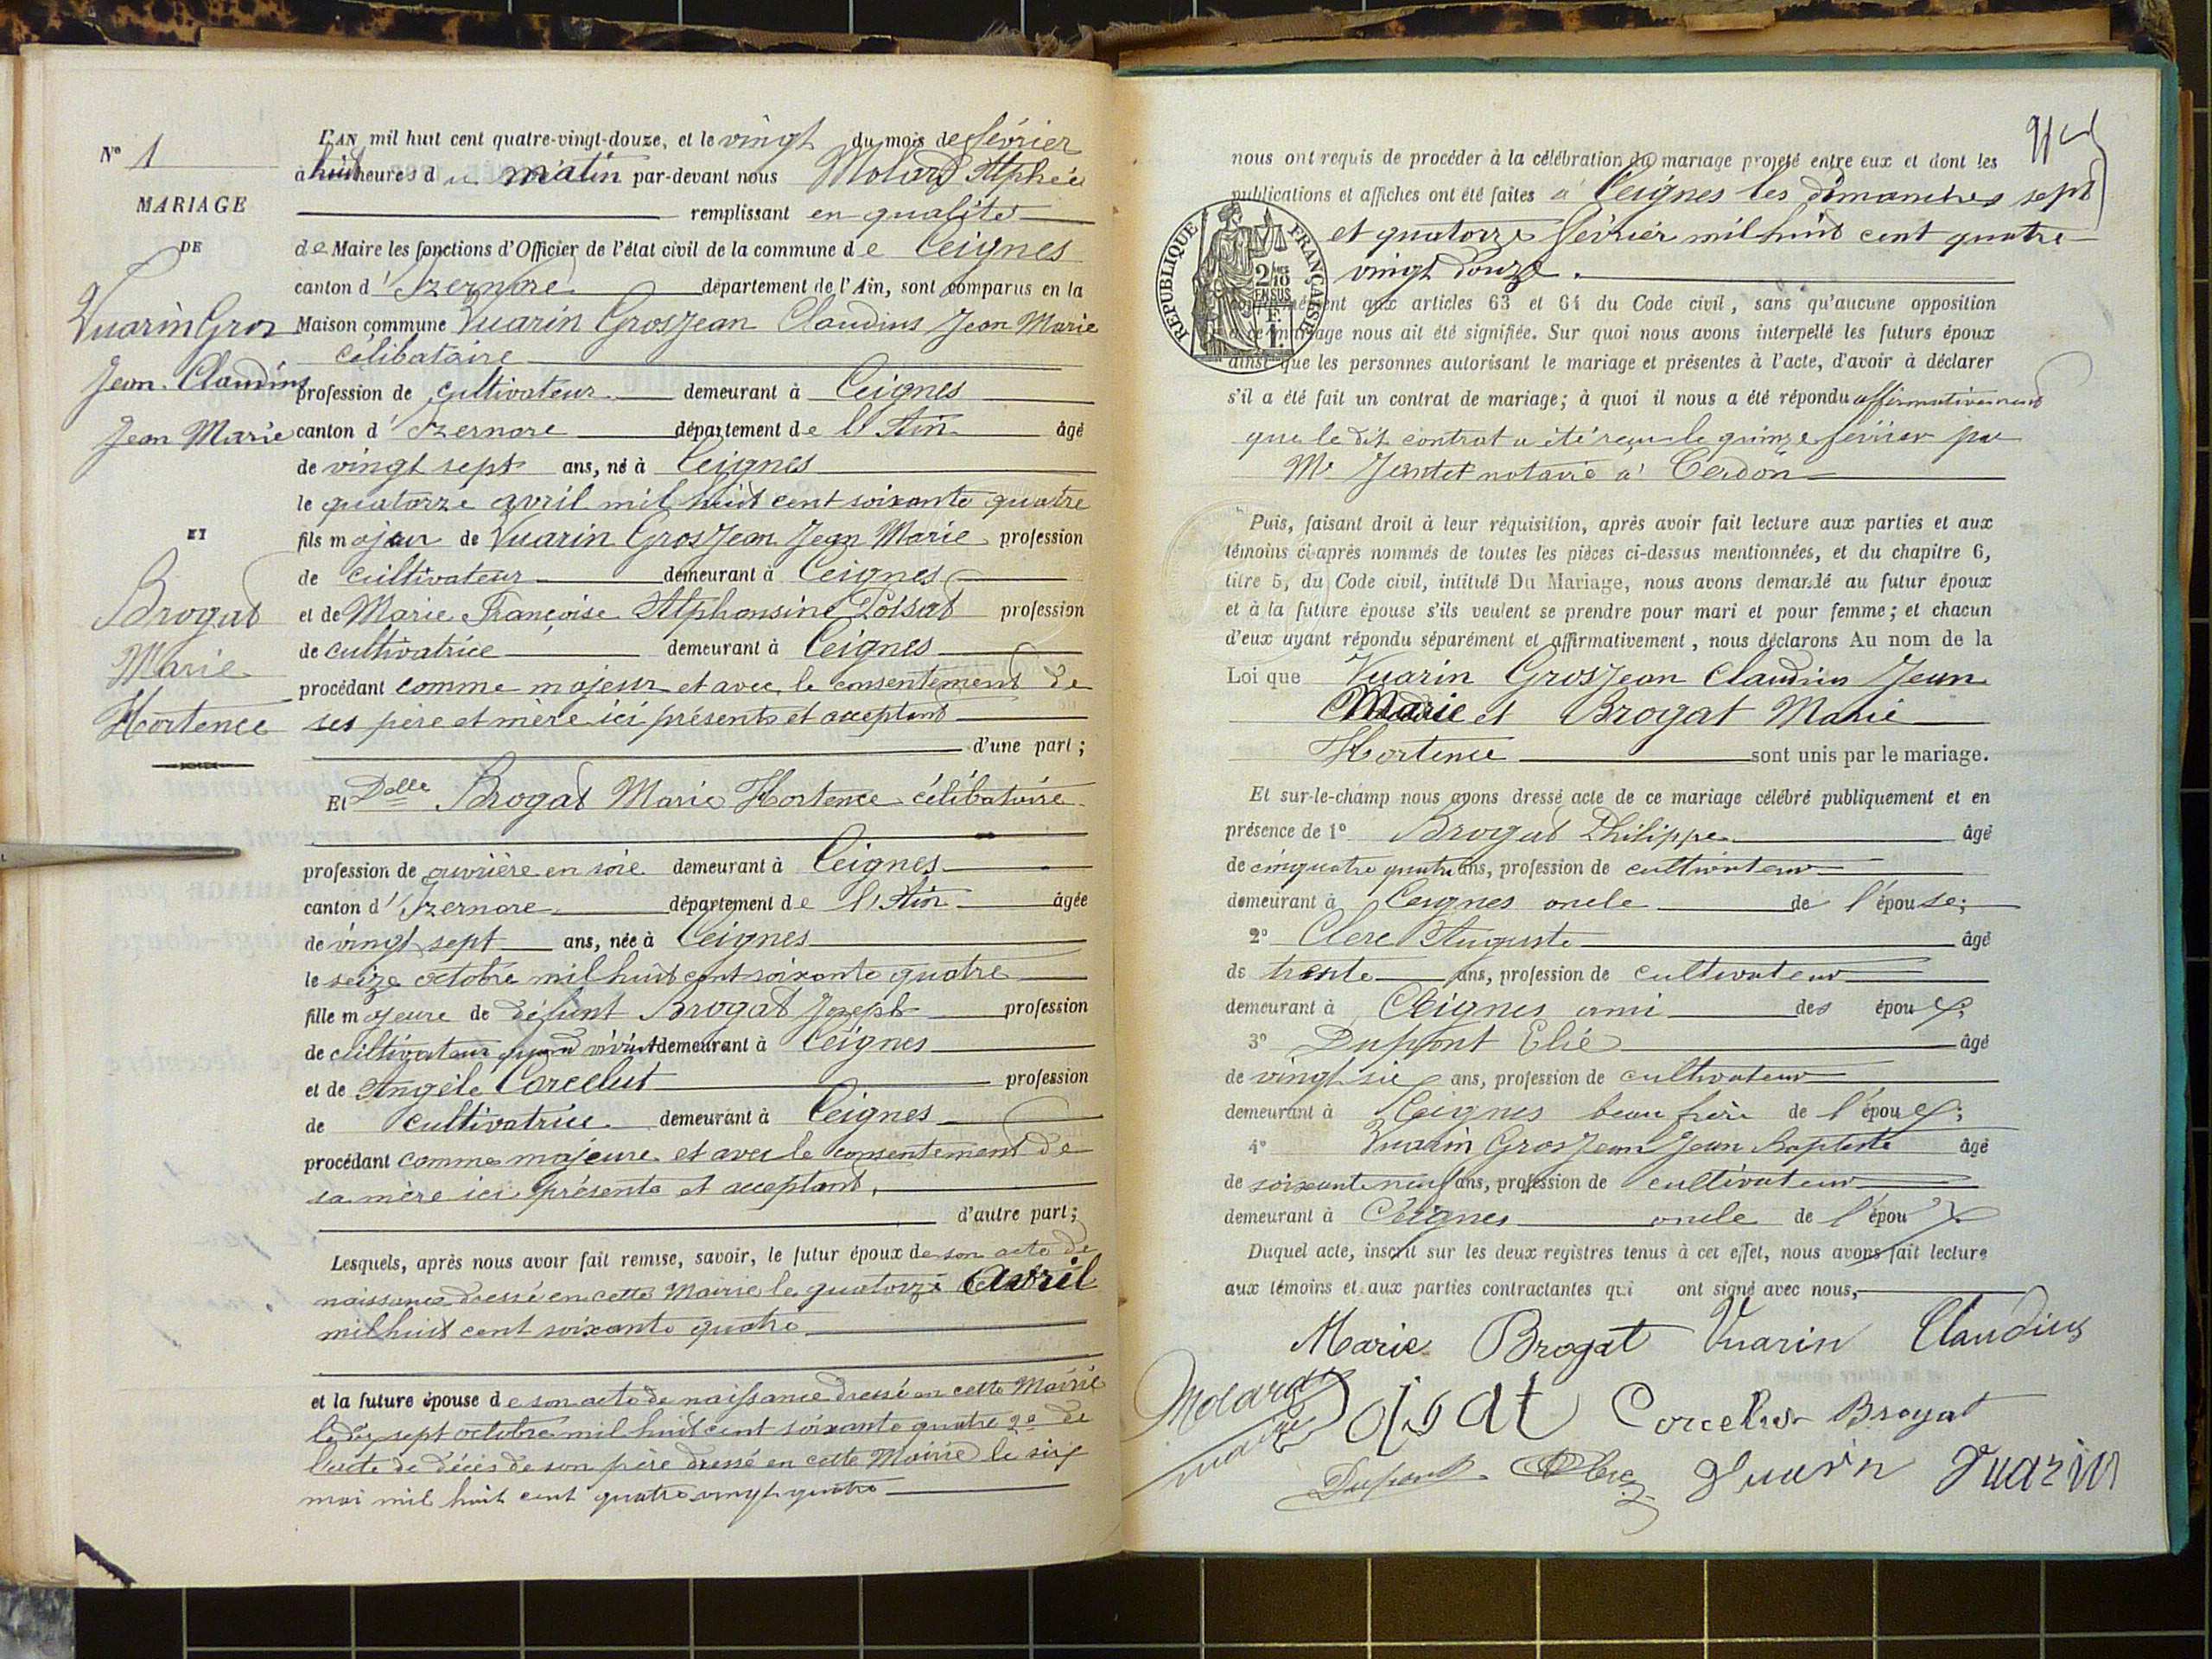 N° 1
MARIAGE
DE
Vuarin Gros
Jean Claudius
Jean Marie
ET
Brogat
Marie
Hortence
L'AN mil huit cent quatre-vingt-douze, et le vingt du mois de février
à huit heures du matin par-devant nous Molard Alphée
remplissant en qualité
de Maire les fonctions d'Officier de l'état civil de la commune de Ceignes
canton d'Izernore département de l'Ain, sont comparus en la
Maison commune Vuarin GrosJean Claudius Jean Marie
célibataire
profession de cultivateur demeurant à Ceignes
canton d'Izernore département de l'Ain âgé
de vingt sept ans, né à Ceignes
le quatorze avril mil huit cent soixante quatre
fils majeur de Vuarin GrosJean Jean Marie profession
de cultivateur demeurant à Ceignes
et de Marie Françoise Alphonsine Poisat profession
de cultivatrice demeurant à Ceignes
procédant comme majeur et avec le consentement de
ses père et mère ici présents et acceptant
d'une part;
Et Delle Brogat Marie Hortence célibataire
profession de ouvrière en soie demeurant à Ceignes
canton d'Izernore département de l'Ain âgée
de vingt sept ans, née à Ceignes
le seize octobre mil huit cent soixante quatre
fille majeure de défunt Brogat Joseph profession
de cultivateur quand vivait demeurant à Ceignes
et de Angèle Corcelut profession
de cultivatrice demeurant à Ceignes
procédant comme majeure et avec le consentement de
sa mère ici présente et acceptant,
d'autre part;
Lesquels, après nous avoir fait remise, savoir, le futur époux de son acte de
naissance dressé en cette Mairie le quatorze Avril
mil huit cent soixante quatre
et la future épouse de son acte de naissance dressé en cette Mairie
le dix sept octobre mil huit cent soixante quatre 2° de
l'acte de décès de son père dressé en cette Mairie le six
mai mil huit cent quatre vingt quatre
nous ont requis de procéder à la célébration du mariage projeté entre eux et dont les
publications et affiches ont été faites à Ceignes les dimanches sept
et quatorze février mil huit cent quatre
vingt douze.
RÉPUBLIQUE FRANÇAISE
2/10 EN SUS
1 F.
conformément aux articles 63 et 64 du Code civil, sans qu'aucune opposition
à ce mariage nous ait été signifiée. Sur quoi nous avons interpellé les futurs époux
ainsi que les personnes autorisant le mariage et présentes à l'acte, d'avoir à déclarer
s'il a été fait un contrat de mariage; à quoi il nous a été répondu affirmativement
que le dit contrat a été reçu le quinze février par
Me Jantet notaire à Cerdon
Puis, faisant droit à leur réquisition, après avoir fait lecture aux parties et aux
témoins ci-après nommés de toutes les pièces ci-dessus mentionnées, et du chapitre 6,
titre 5, du Code civil, intitulé Du Mariage, nous avons demandé au futur époux
et à la future épouse s'ils veulent se prendre pour mari et pour femme; et chacun
d'eux ayant répondu séparément et affirmativement, nous déclarons Au nom de la
Loi que Vuarin GrosJean Claudius Jean
Marie et Brogat Marie
Hortence sont unis par le mariage.
Et sur-le-champ nous avons dressé acte de ce mariage célébré publiquement et en
présence de 1° Brogat Philippe âgé
de cinquante quatre ans, profession de cultivateur
demeurant à Ceignes oncle de l'épouse;
2° Clerc Auguste âgé
de trente ans, profession de cultivateur
demeurant à Ceignes ami des époux;
3° Dupont Elié âgé
de vingt six ans, profession de cultivateur
demeurant à Ceignes beau frère de l'époux;
4° Vuarin GrosJean Jean Baptiste âgé
de soixante neuf ans, profession de cultivateur
demeurant à Ceignes oncle de l'époux
Duquel acte, inscrit sur les deux registres tenus à cet effet, nous avons fait lecture
aux témoins et aux parties contractantes qui ont signé avec nous,
Marie Brogat Vuarin Claudius
Molard Maire
Corcelut Brogat
Dupont Clerc Vuarin Vuarin